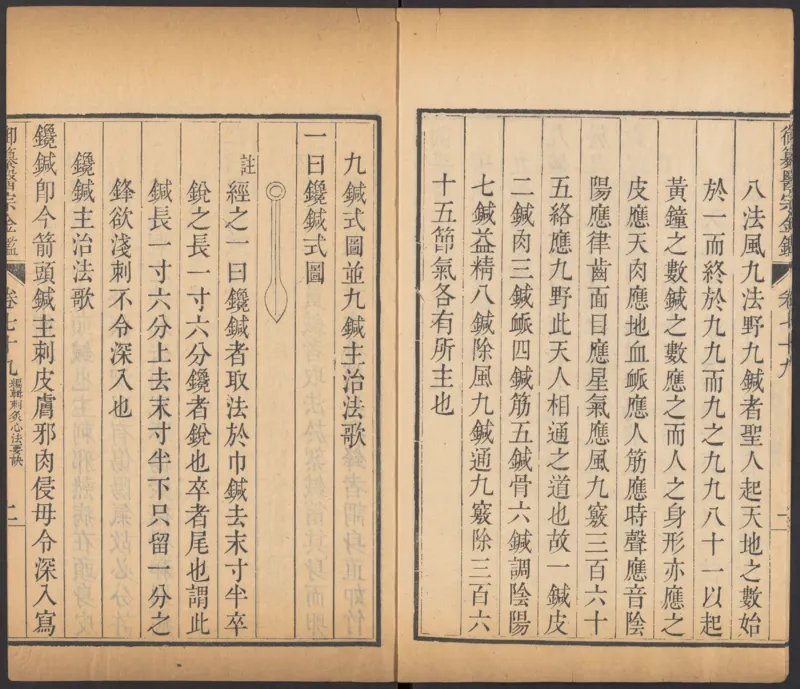 御纂醫宗金鑑
卷七十九
八法風九法野九鍼者聖人起天地之數始
於一而終於九九而九之九九八十一以起
黃鐘之數鍼之數應之而人之身形亦應之
皮應天肉應地血脈應人筋應時聲應音陰
陽應律齒面目應星氣應風九竅三百六十
五絡應九野此天人相通之道也故一鍼皮
二鍼肉三鍼脈四鍼筋五鍼骨六鍼調陰陽
七鍼益精八鍼除風九鍼通九竅除三百六
十五節氣各有所主也
九鍼式圖並九鍼主治法歌
一曰鑱鍼式圖
註經之一曰鑱鍼者取法於巾鍼去末寸半卒
銳之長一寸六分鑱者銳也卒者尾也謂此
鍼長一寸六分上去末寸半下只留一分之
鋒欲淺刺不令深入也
鑱鍼主治法歌
鑱鍼卽今箭頭鍼主刺皮膚邪肉侵毋令深入寫
御纂醫宗金鑑
卷七十九
編輯刺灸心法要訣
二